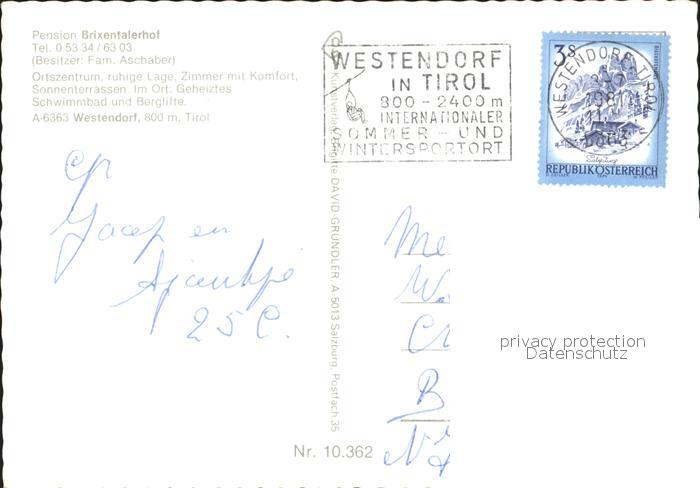 Pension Brixentalerhof
Tel. 0 53 34 / 63 03
(Besitzer: Fam. Aschaber)
Ortszentrum, ruhige Lage, Zimmer mit Komfort,
Sonnenterrassen. Im Ort: Geheiztes
Schwimmbad und Berglifte.
A-6363 Westendorf, 800 m, Tirol
WESTENDORF
IN TIROL
800 - 2400 m
INTERNATIONALER
SOMMER - UND
WINTERSPORTORT
3S
WESTENDORF TIROL
6363
REPUBLIK ÖSTERREICH
Kunstverlag Brigitte DAVID-GRÜNDLER, A-5013 Salzburg, Postfach 35
Jaap en
Sjaantje
25 C.
Me
W
C
B
N
privacy protection
Datenschutz
Nr. 10.362